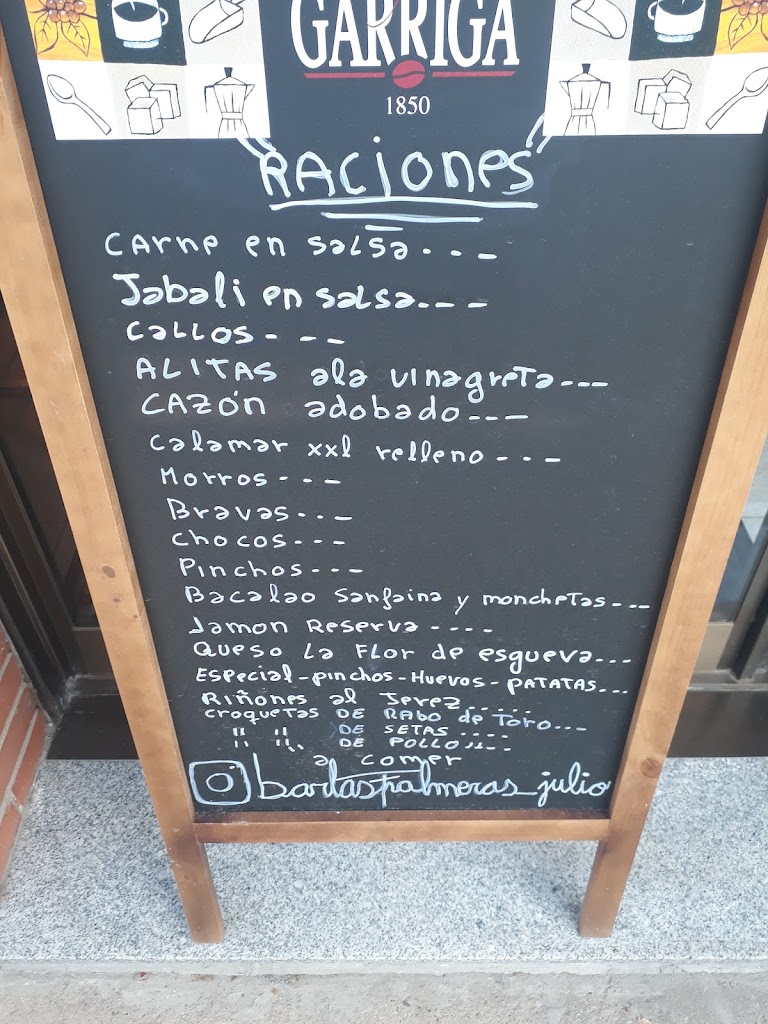 GARRIGA
1850
"RACiones"
CArne en salsa - - -
Jabali en salsa - - -
Callos - - -
ALITAS ala vinagreta - - -
CAZÓN adobado - - -
Calamar xxl relleno - - -
Morros - - -
Bravas - - -
Chocos - - -
Pinchos - - -
Bacalao Sanfaina y monchetas - - -
Jamon Reserva - - - -
Queso La Flor de esgueva - - -
Especial - pinchos - Huevos - PATATAS...
Riñones al Jerez......
croquetas DE RAbo de Toro - - -
" " DE SETAS ....
" " DE POLLO
a comer
barlaspalmeras_julio